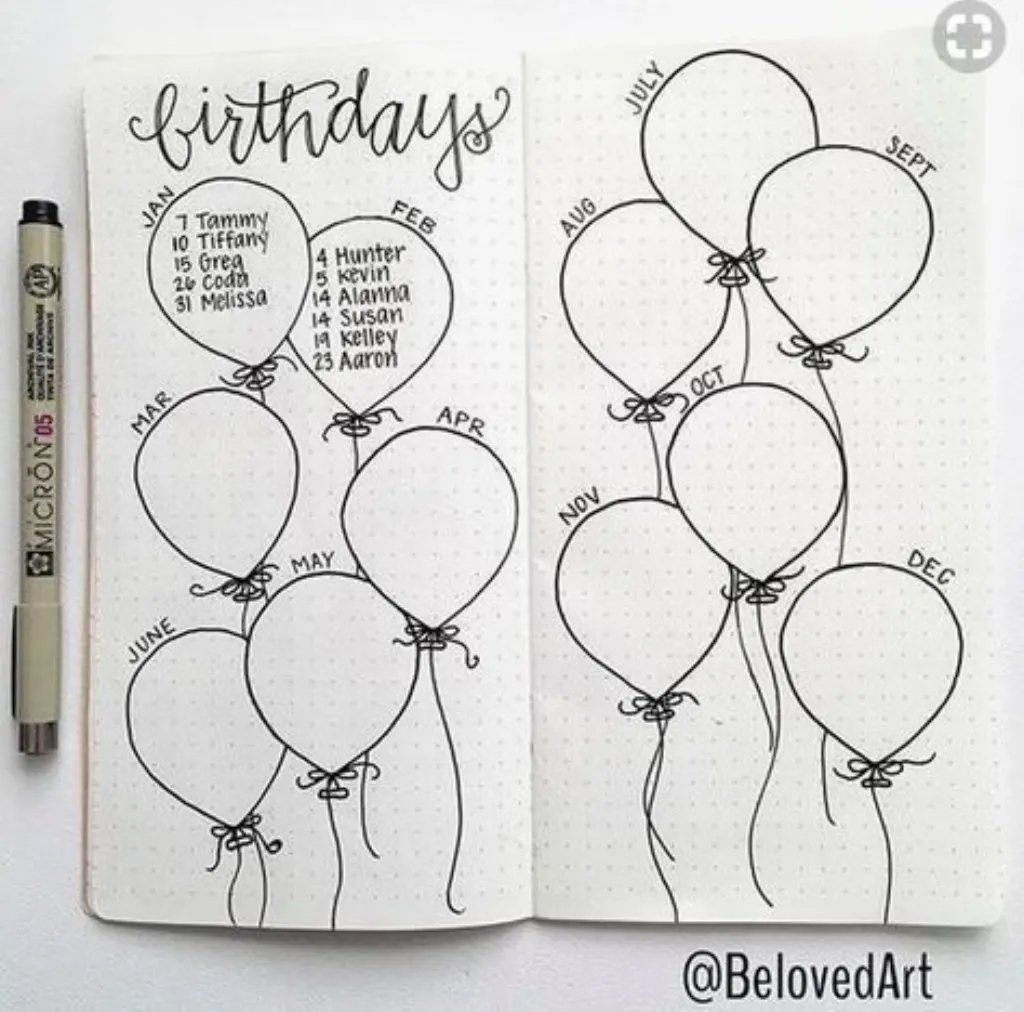 birthdays
JAN
7 Tammy
10 Tiffany
15 Greg
26 Coda
31 Melissa
FEB
4 Hunter
5 Kevin
14 Alanna
14 Susan
19 Kelley
23 Aaron
MAR
APR
MAY
JUNE
JULY
AUG
SEPT
OCT
NOV
DEC
MICRON 05
ARCHIVAL INK
QUALITÉ D'ARCHIVAGE
TINTA DE ARCHIVE
AP
@BelovedArt